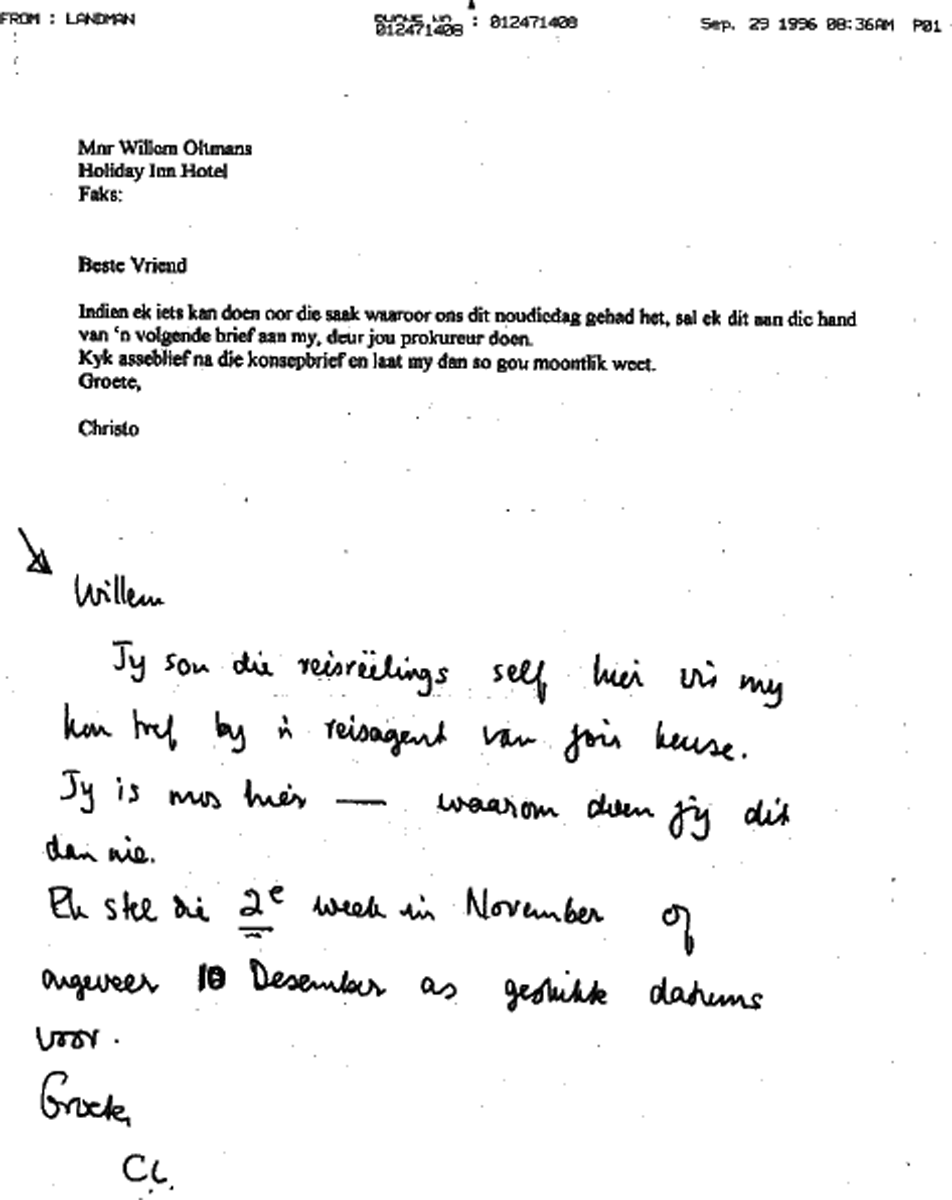 FROM : LANDMAN 012471408 : 012471408 Sep. 29 1996 08:36AM P01
Mnr Willem Oltmans
Holiday Inn Hotel
Faks:
Beste Vriend
Indien ek iets kan doen oor die saak waaroor ons dit noudiedag gehad het, sal ek dit aan die hand
van 'n volgende brief aan my, deur jou prokureur doen.
Kyk asseblief na die konsepbrief en laat my dan so gou moontlik weet.
Groete,
Christo
Willem
Jy sou die reisreëlings self hier vir my
kon tref by 'n reisagent van jou keuse.
Jy is mos hier — waarom doen jy dit
dan nie.
Ek stel die 2e week in November of
ongeveer 10 Desember as geskikte datums
voor.
Groete,
CL.